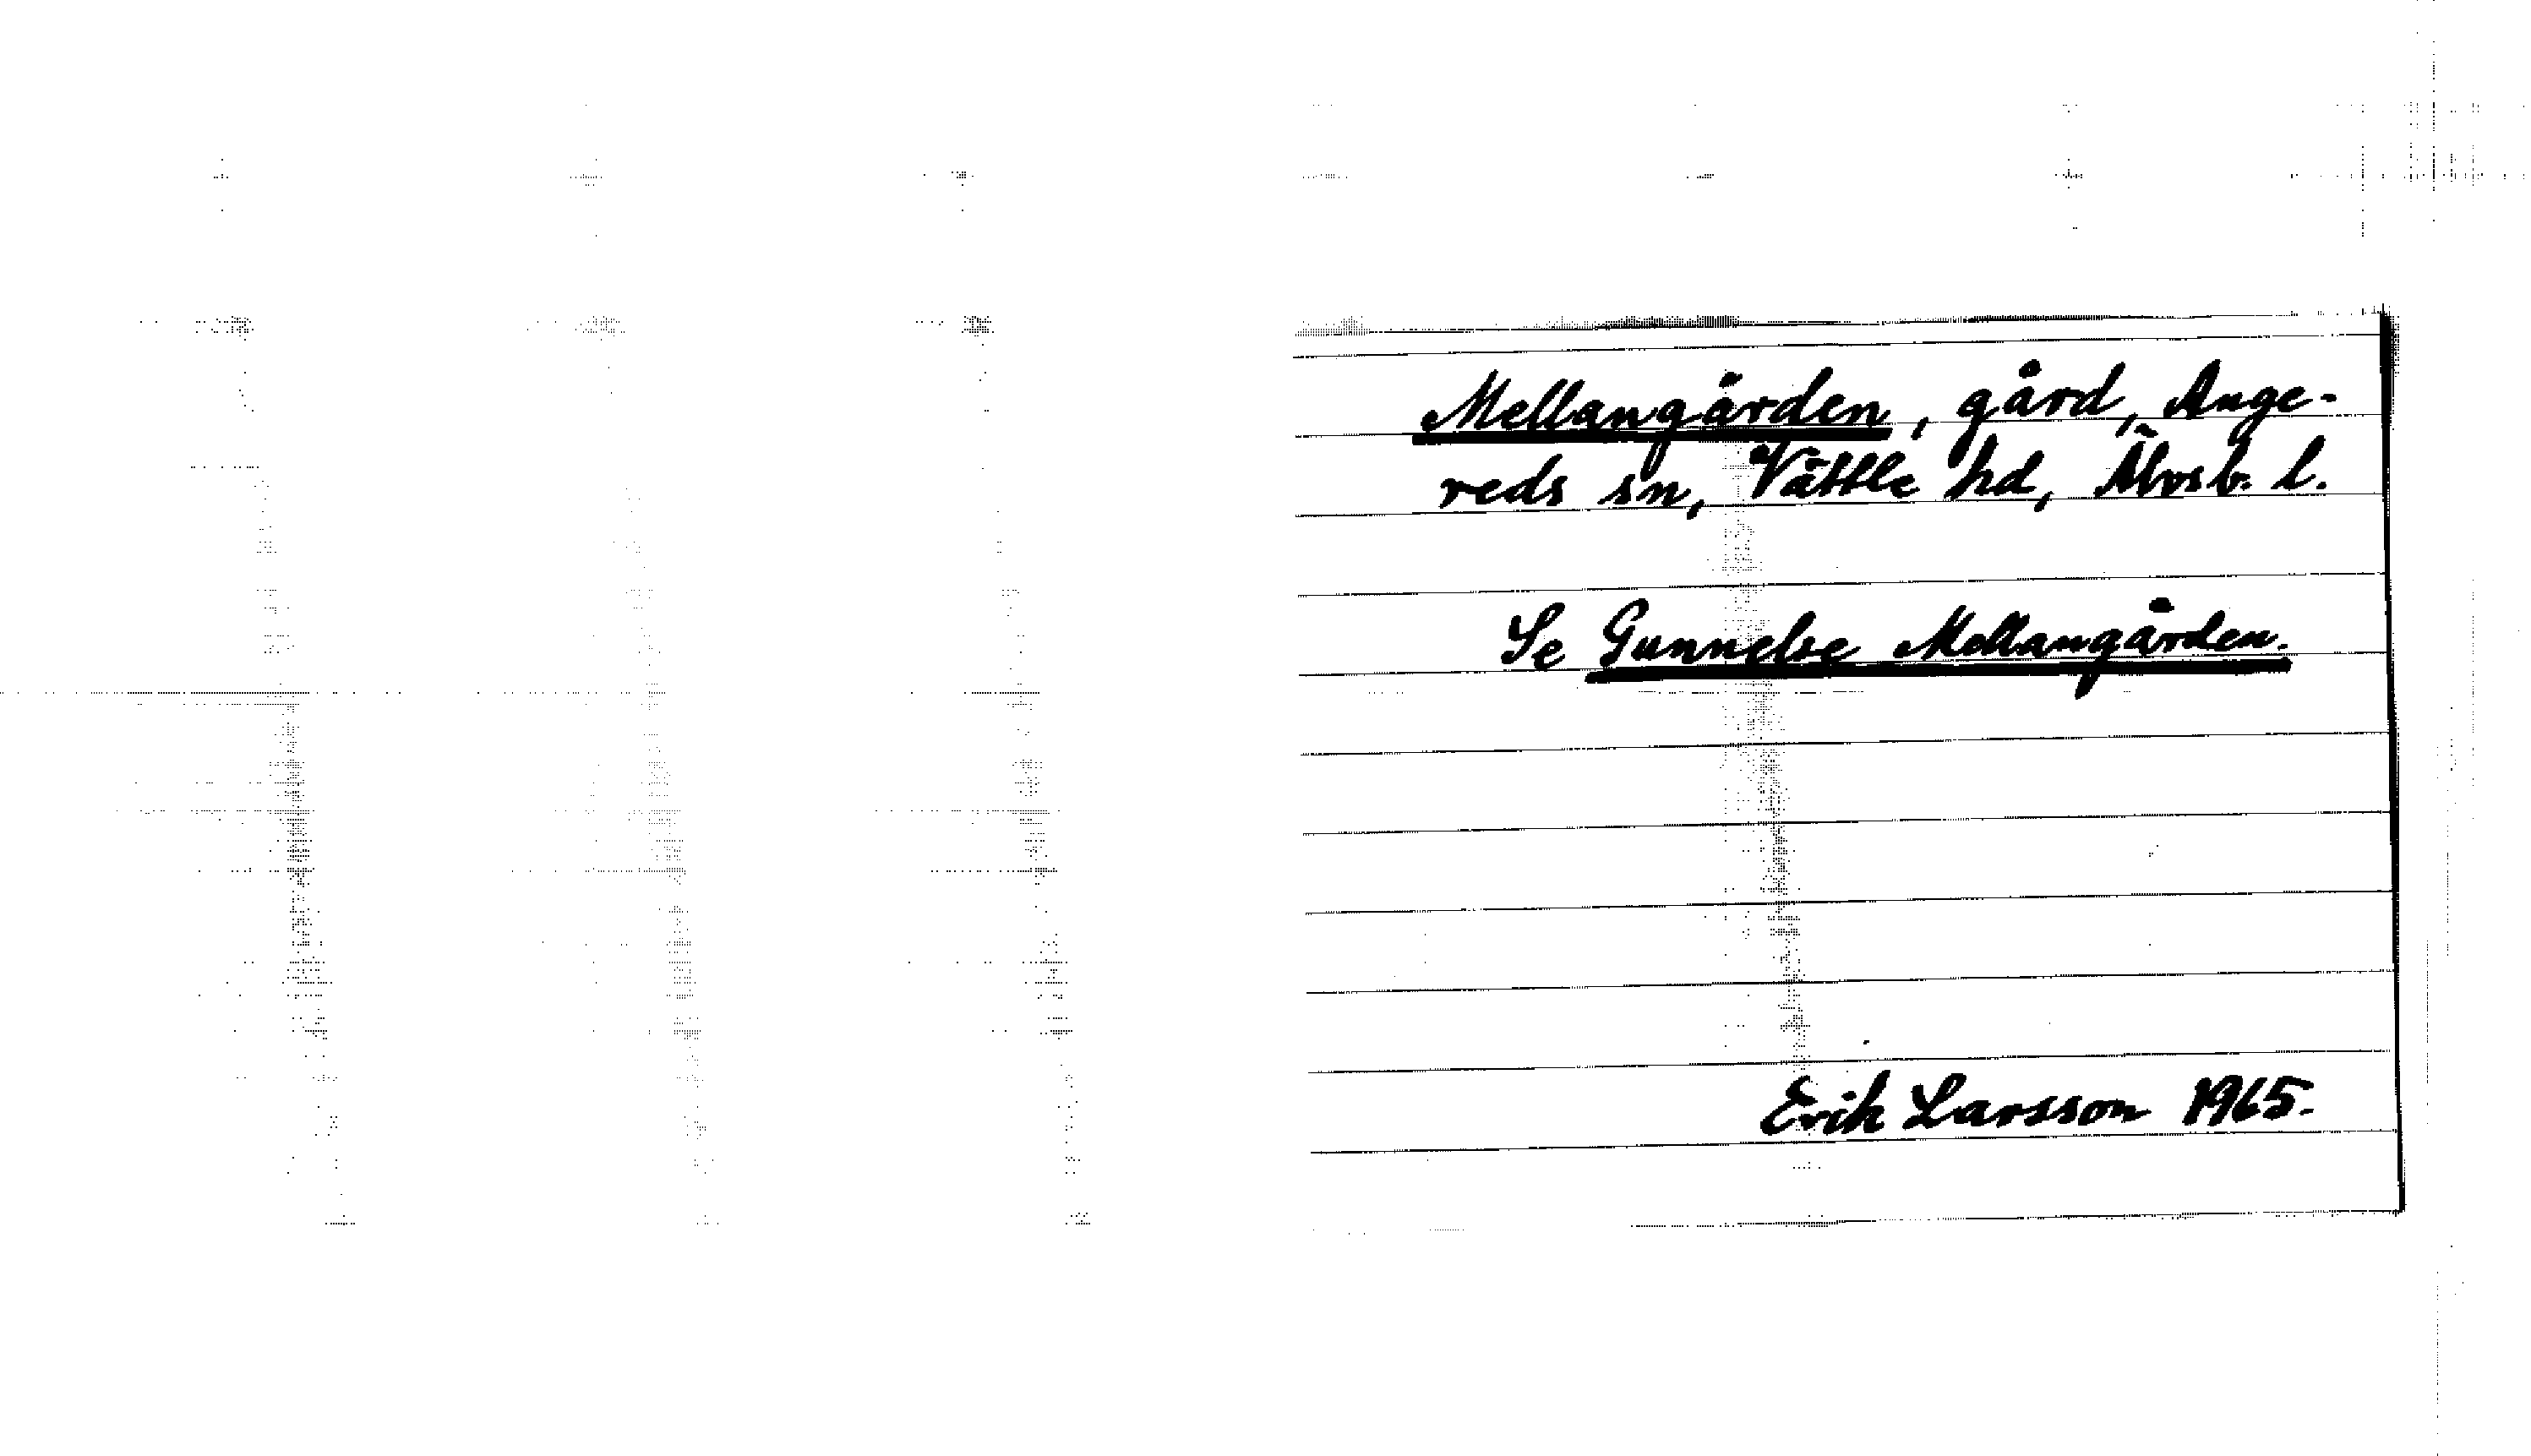 Mellangården, gård, Ange-
reds sn, Vättle hd, Älvsb. l.
Se Gunnelse Mellangården.
Erik Larsson 1965.